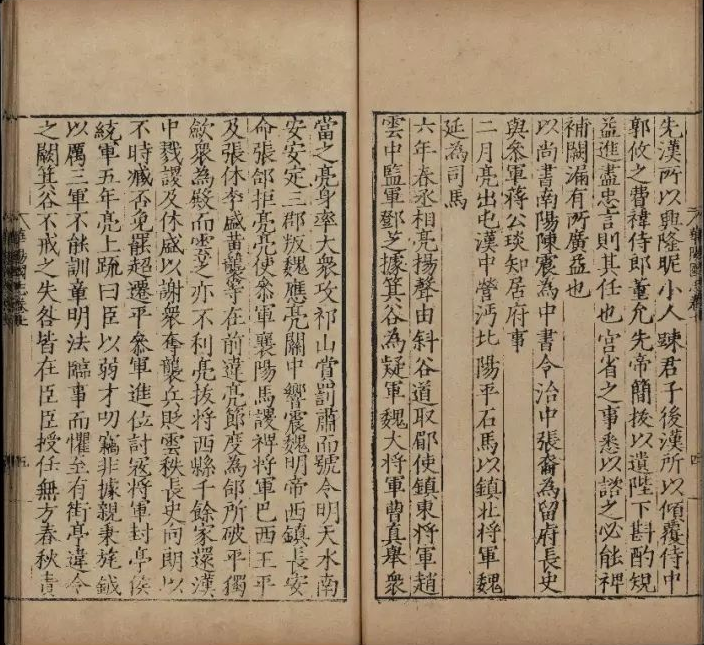 先漢所以興隆昵小人踈君子後漢所以傾覆侍中
郭攸之費禕侍郎董允先帝簡拔以遺陛下斟酌規
益進盡忠言則其任也宮省之事悉以諮之必能裨
補闕漏有所廣益也
以尚書南陽陳震為中書令治中張裔為留府長史
與叅軍蔣公琰知居府事
二月亮出屯漢中營沔北陽平石馬以鎮壯將軍魏
延為司馬
六年春丞相亮揚聲由斜谷道取郿使鎮東將軍趙
雲中監軍鄧芝據箕谷為疑軍魏大將軍曹真舉衆
當之亮身率大衆攻祁山賞罰肅而號令明天水南
安安定三郡叛魏應亮關中響震魏明帝西鎮長安
命張郃拒亮亮使叅軍襄陽馬謖裨將軍巴西王平
及張休李盛黃襲等在前違亮節度為郃所破平獨
斂衆為殿而雲芝亦不利亮拔將西縣千餘家還漢
中戮謖及休盛以謝衆奪襲兵貶雲秩長史向朗以
不時臧否免罷超遷平叅軍進位討寇將軍封亭侯
統軍五年亮上疏曰臣以弱才叨竊非據親秉旄鉞
以厲三軍不能訓章明法臨事而懼至有街亭違令
之闕箕谷不戒之失咎皆在臣臣授任無方春秋責